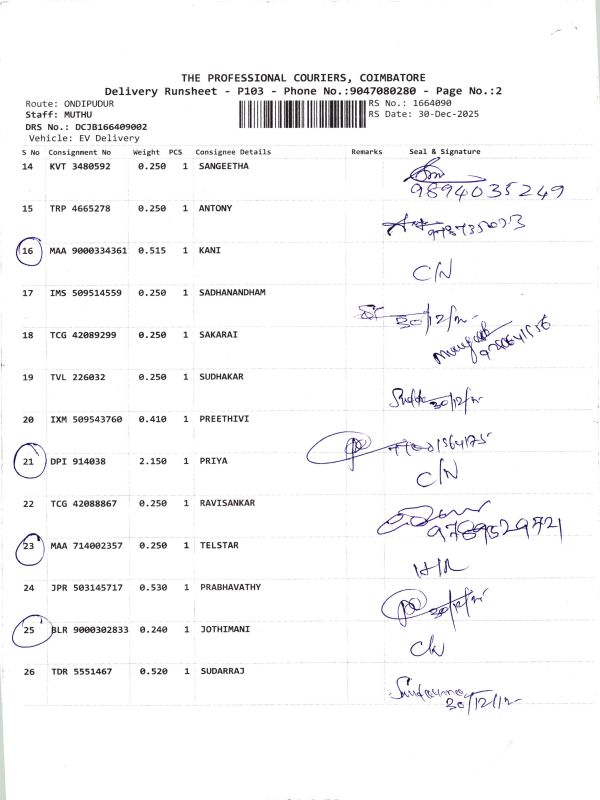 THE PROFESSIONAL COURIERS, COIMBATORE
Delivery Runsheet - P103 - Phone No.:9047080280 - Page No.:2
Route: ONDIPUDUR
RS No.: 1664090
Staff: MUTHU
RS Date: 30-Dec-2025
DRS No.: DCJB166409002
Vehicle: EV Delivery
S No Consignment No Weight PCS Consignee Details Remarks Seal & Signature
14 KVT 3480592 0.250 1 SANGEETHA
9894035249
15 TRP 4665278 0.250 1 ANTONY
16 MAA 9000334361 0.515 1 KANI
C/N
17 IMS 509514559 0.250 1 SADHANANDHAM
30/12/
18 TCG 42089299 0.250 1 SAKARAI
19 TVL 226032 0.250 1 SUDHAKAR
30/12/
20 IXM 509543760 0.410 1 PREETHIVI
21 DPI 914038 2.150 1 PRIYA
C/N
22 TCG 42088867 0.250 1 RAVISANKAR
9789529721
23 MAA 714002357 0.250 1 TELSTAR
24 JPR 503145717 0.530 1 PRABHAVATHY
30/12/
25 BLR 9000302833 0.240 1 JOTHIMANI
C/N
26 TDR 5551467 0.520 1 SUDARRAJ
30/12/